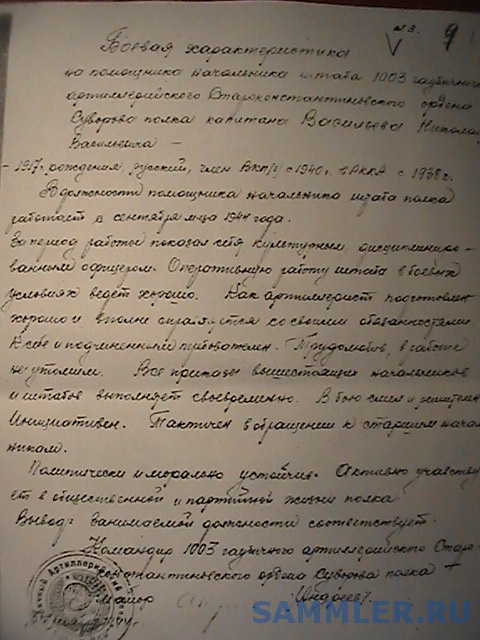 №3. 9
Боевая характеристика
на помощника начальника штаба 1003 гаубичного
артиллерийского Староконстантиновского ордена
Суворова полка капитана Васильева Николая
Васильевича –
– 1917 г. рождения, русский, член ВКП/б/ с 1940г. в РККА с 1938г.
В должности помощника начальника штаба полка
работает с сентября м-ца 1944 года.
За период работы показал себя культурным, дисциплиниро-
ванным офицером. Оперативную работу штаба в боевых
условиях ведет хорошо. Как артиллерист подготовлен
хорошо и вполне справляется со своими обязанностями.
К себе и подчиненным требователен. Трудолюбив, в работе
не утомим. Все приказы вышестоящих начальников
и штабов выполняет своевременно. В бою смел и решителен
Инициативен. Тактичен в обращении к старшим началь
никам.
Политически и морально устойчив. Активно участву
ет в общественной и партийной жизни полка
Вывод: Занимаемой должности соответствует.
Командир 1003 гаубичного артиллерийского Старо-
константиновского ордена Суворова полка
майор
SAMMLER.RU